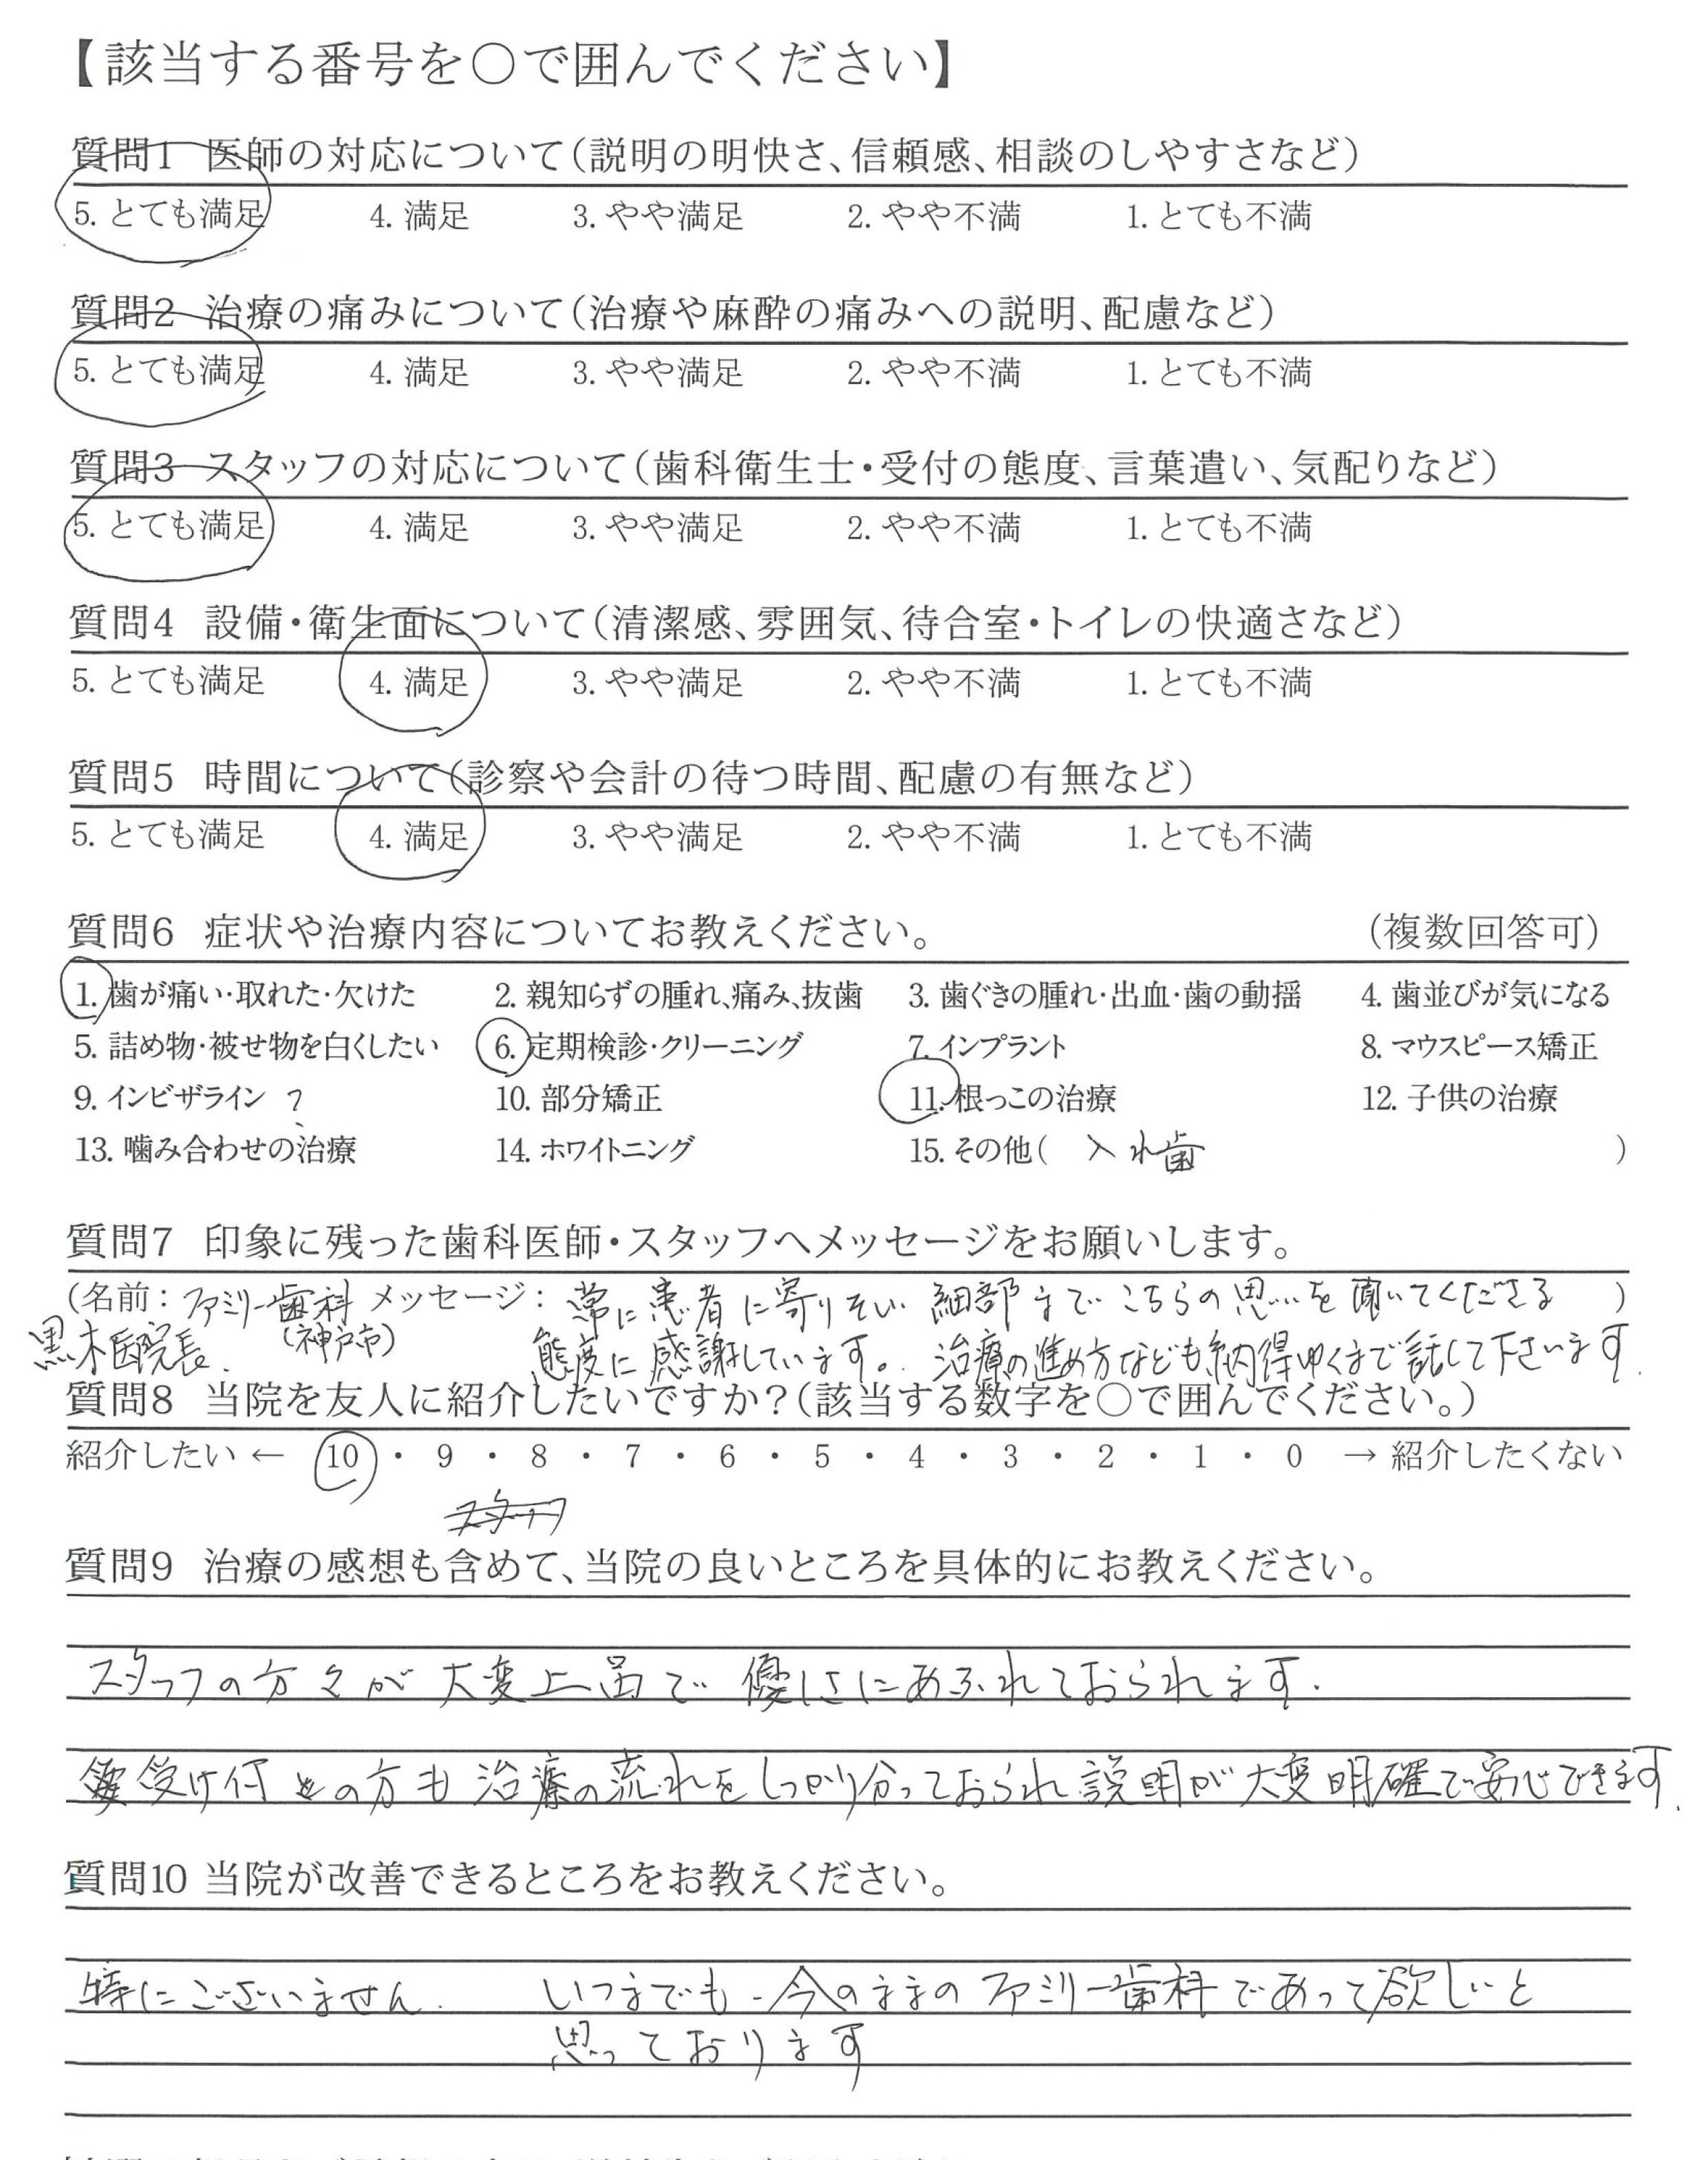 【該当する番号を〇で囲んでください】
質問1 医師の対応について（説明の明快さ、信頼感、相談のしやすさなど）
5. とても満足 4. 満足 3. やや満足 2. やや不満 1. とても不満
質問2 治療の痛みについて（治療や麻酔の痛みへの説明、配慮など）
5. とても満足 4. 満足 3. やや満足 2. やや不満 1. とても不満
質問3 スタッフの対応について（歯科衛生士・受付の態度、言葉遣い、気配りなど）
5. とても満足 4. 満足 3. やや満足 2. やや不満 1. とても不満
質問4 設備・衛生面について（清潔感、雰囲気、待合室・トイレの快適さなど）
5. とても満足 4. 満足 3. やや満足 2. やや不満 1. とても不満
質問5 時間について（診察や会計の待つ時間、配慮の有無など）
5. とても満足 4. 満足 3. やや満足 2. やや不満 1. とても不満
質問6 症状や治療内容についてお教えください。 （複数回答可）
1. 歯が痛い・取れた・欠けた 2. 親知らずの腫れ、痛み、抜歯 3. 歯ぐきの腫れ・出血・歯の動揺 4. 歯並びが気になる
5. 詰め物・被せ物を白くしたい 6. 定期検診・クリーニング 7. インプラント 8. マウスピース矯正
9. インビザライン ? 10. 部分矯正 11. 根っこの治療 12. 子供の治療
13. 噛み合わせの治療 14. ホワイトニング 15. その他（ 入れ歯 ）
質問7 印象に残った歯科医師・スタッフへメッセージをお願いします。
（名前：ファミリー歯科 メッセージ：常に患者に寄りそい 細部まで こちらの思いを聞いてくださる ）
黒木医院長 (神戸市) 態度に感謝しています。治療の進め方なども納得ゆくまで話して下さいます.
質問8 当院を友人に紹介したいですか？（該当する数字を〇で囲んでください。）
紹介したい ← 10 ・ 9 ・ 8 ・ 7 ・ 6 ・ 5 ・ 4 ・ 3 ・ 2 ・ 1 ・ 0 → 紹介したくない
スタッフ
質問9 治療の感想も含めて、当院の良いところを具体的にお教えください。
スタッフの方々が 大変上品で 優しさにあふれておられます.
受け付の方も 治療の流れをしっかり分っておられ 説明が大変明確で安心できます.
質問10 当院が改善できるところをお教えください。
特にございません. いつまでも 今のままの ファミリー歯科であって欲しいと
思っております